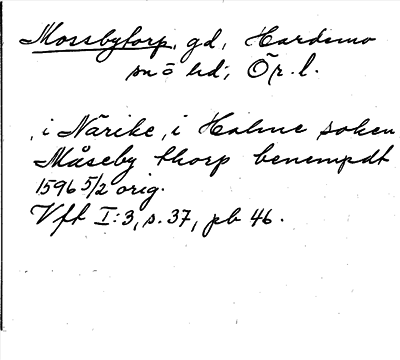 Mossbytorp, gd, Hardemo
sn ō hd, Ör. l.
, i Närike, i Halme soken
Måseby thorp benempdt
1596 5/2 orig.
Vft I:3, s. 37, pb 46.